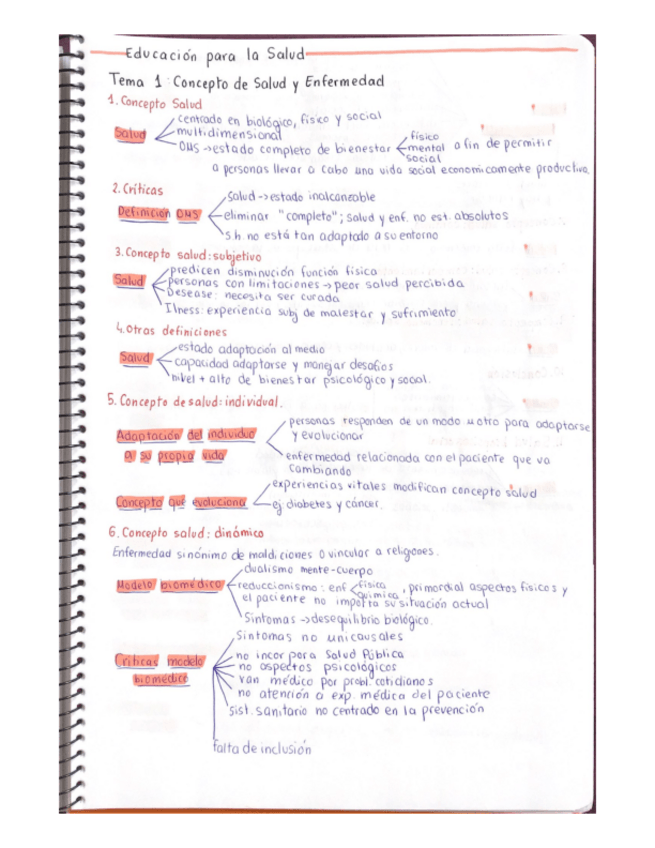 Educación para la Salud
Tema 1: Concepto de Salud y Enfermedad
1. Concepto Salud
Salud
centrado en biológico, físico y social
multidimensional
OMS → estado completo de bienestar
físico
mental
social
a fin de permitir
a personas llevar a cabo una vida social economicamente productiva.
2. Críticas
Definición OMS
Salud → estado inalcanzable
eliminar "completo"; salud y enf. no est. absolutos
s.h. no está tan adaptado a su entorno
3. Concepto salud: subjetivo
Salud
predicen disminución función física
personas con limitaciones → peor salud percibida
Desease: necesita ser curada
Ilness: experiencia subj de malestar y sufrimiento
4. Otras definiciones
Salud
estado adaptación al medio
capacidad adaptarse y manejar desafios
nivel + alto de bienestar psicológico y social.
5. Concepto de salud: individual.
Adaptación del individuo
a su propia vida
personas responden de un modo u otro para adaptarse
y evolucionar
enfermedad relacionada con el paciente que va
cambiando
Concepto que evoluciona
experiencias vitales modifican concepto salud
ej diabetes y cáncer.
6. Concepto salud: dinámico
Enfermedad sinónimo de maldiciones o vincular a religiones.
Modelo biomédico
dualismo mente-cuerpo
reduccionismo: enf
física
química
, primordial aspectos físicos y
el paciente no importa su situación actual
Síntomas → desequilibrio biológico.
Críticas modelo
biomédico
Síntomas no unicausales
no incorpora Salud Pública
no aspectos psicológicos
van médico por probl. cotidianos
no atención a exp. médica del paciente
sist. sanitario no centrado en la prevención
falta de inclusión